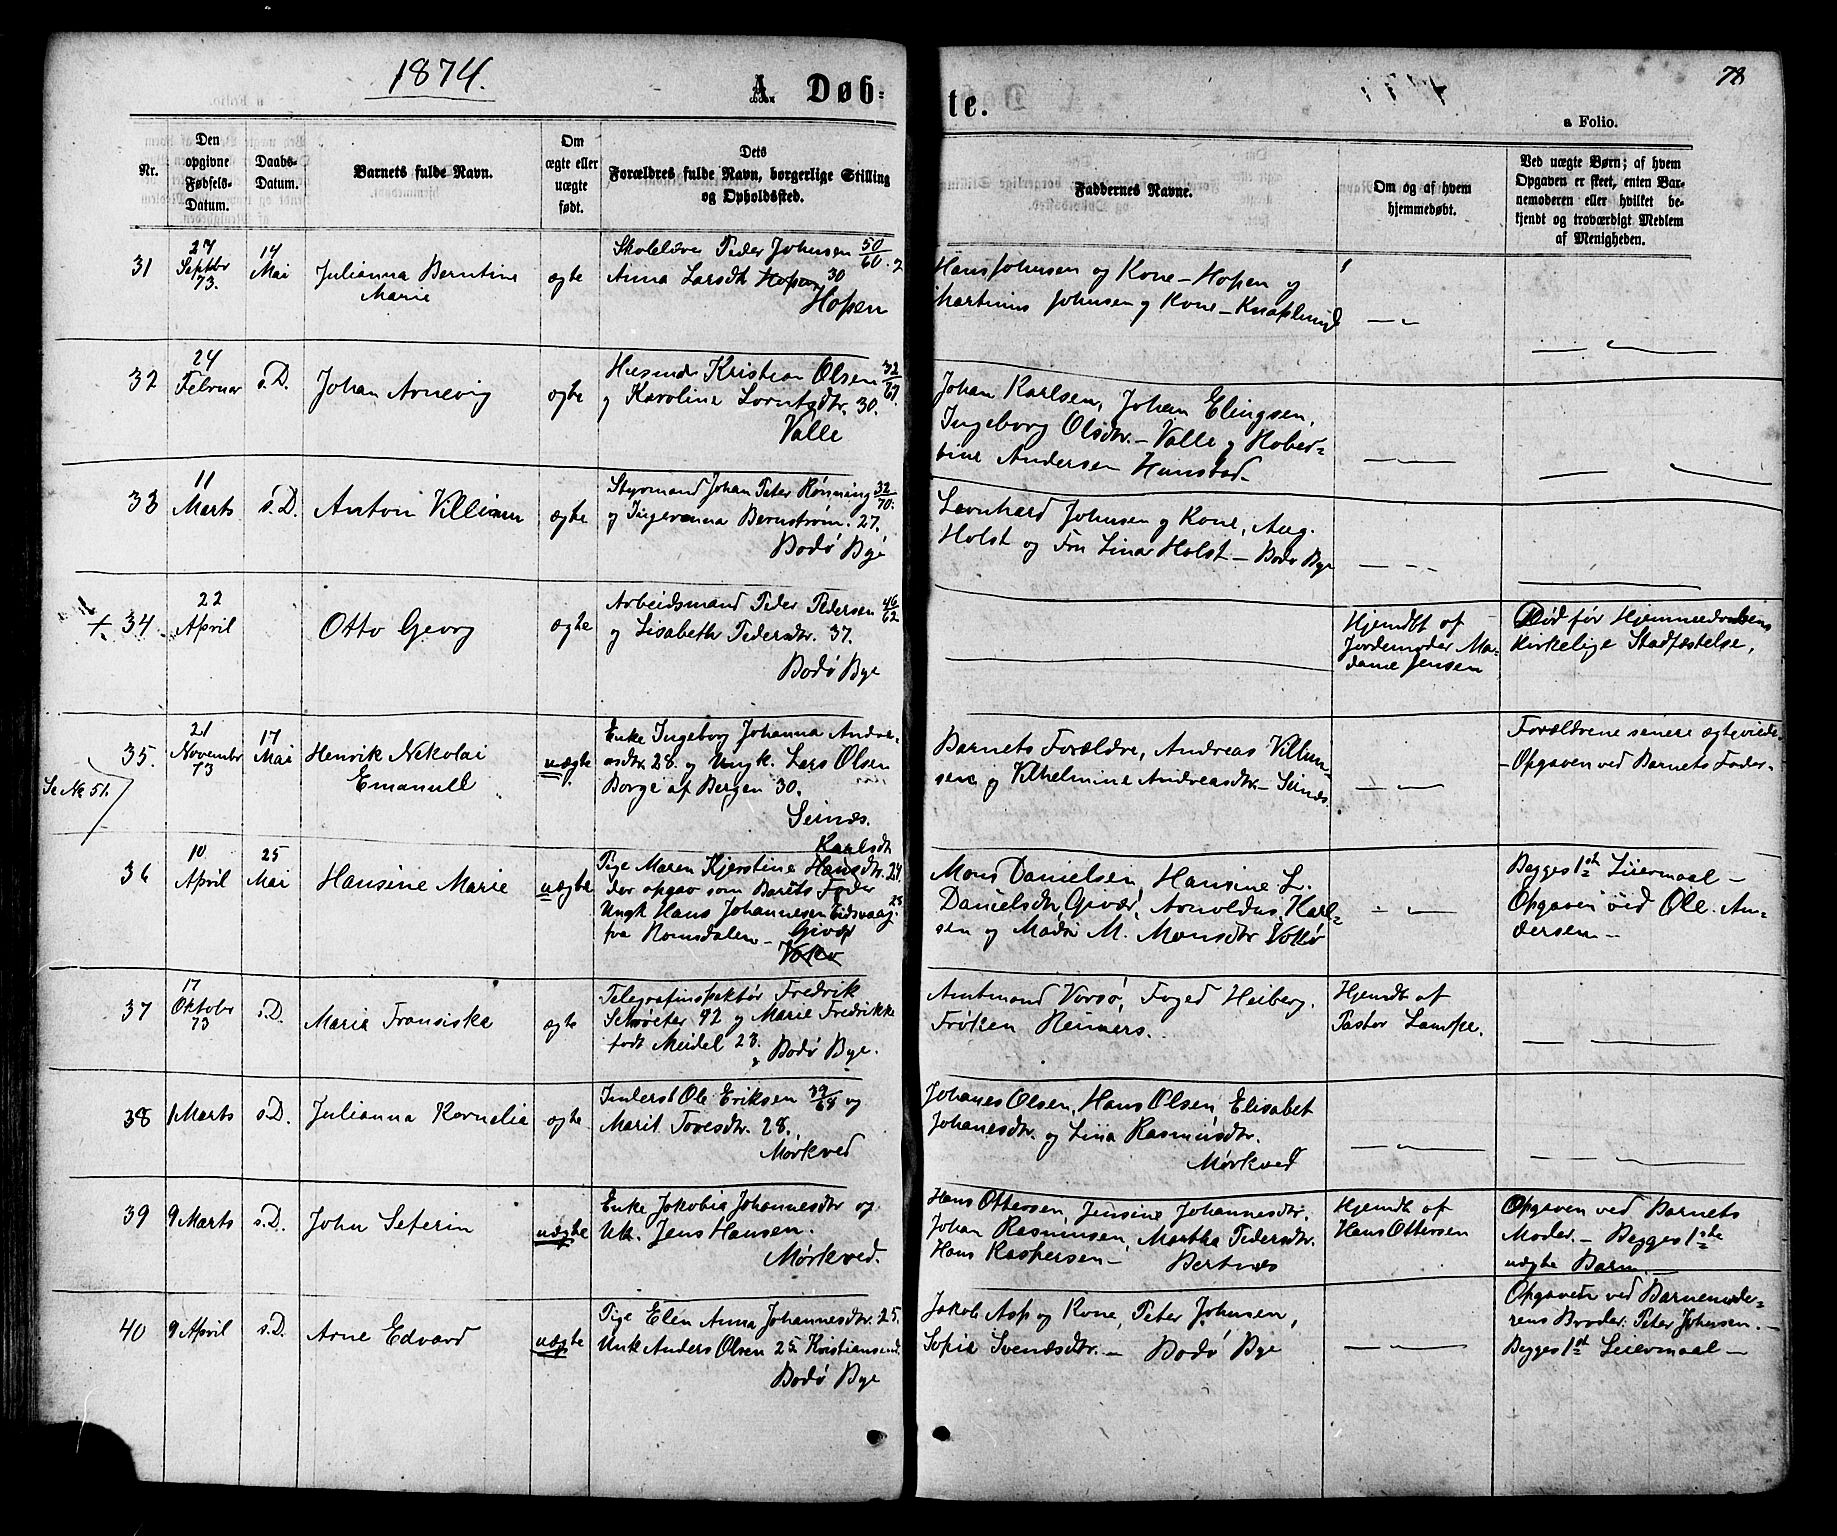 1874.
A. Døb-
te.
78
a Folio.
Nr.
Den
opgivne
Fødsels-
Datum.
Daabs-
Datum.
Barnets fulde Navn.
Om
ægte eller
uægte
født.
Dets
Forældres fulde Navn, borgerlige Stilling
og Opholdssted.
Faddernes Navne.
Om og af hvem
hjemmedøbt.
Ved uægte Børn; af hvem
Opgaven er skeet, enten Bar-
nemoderen eller hvilket be-
kjendt og troværdigt Medlem
af Menigheden.
31
27
Septbr
73.
14
Mai
Julianna Berntine
Marie
ægte
Skolelære Peder Johnsen 50/60
Anna Larsdt Hopen 30
Hopen
Hans Johnsen og Kone - Hopen og
Martinus Johnsen og Kone - Knaplund
32
24
Februar
s.D.
Johan Arnevig
ægte
Husmd Kristian Olsen 32/67
og Karoline Lorntsdtr. 30.
Valle
Johan Karlsen, Johan Elingsen,
Ingeborg Olsdtr. - Valle og Hober-
tine Andersen Hunstad.
33
11
Marts
s.D.
Anton Villiam
ægte
Styrmand Johan Peter Rønning 32/70.
og Ingevanna Bernstrøm. 27.
Bodø Bye
Leonhard Johnsen og Kone, Aug.
Holst og Fru Lina Holst - Bodø Bye
+ 34.
22
April
Otto Georg
ægte
Arbeidsmand Peder Pedersen 46/62
og Lisabeth Pedersdtr. 37.
Bodø Bye
Hjemdbt af
Jordemoder Ma-
dame Jensen
Død før Hjemmedaabens
kirkelige Stadfæstelse,
35.
Se No 51.
21
November
73
17
Mai
Henrik Nikolai
Emanuel
uægte
Enke Ingeborg Johanna Andre-
asdtr. 28. og Ungk. Lars Olsen
Borge af Bergen 30.
Seinæs.
Barnets Forældre, Andreas Villum-
sen og Vilhelmine Andreasdtr. - Seinæs.
Forældrene senere ægteviede
- Opgaven ved Barnets Fader -
36
10
April
25
Mai
Hansine Marie
uægte
Karlsdt
Pige Maren Kjerstine Hansdtr. 24
der opgav som Barnets Fader
Ungk Hans Johannesen Eidsvaag. 28
fra Romsdalen - Givær
Valvø
Mons Danielsen, Hansine L.
Danielsdtr, Givær, Arnoldus Karl-
sen og Mads M. Monsdtr
Begges 1ste Leiermaal -
Opgaven ved Ole An-
dersen -
37
17
Oktober
73
s.D.
Maria Fransiska
ægte
Telegrafinspektør Fredrik
Schrøeter 42 og Marie Fredrikke
født Meidel 23.
Bodø Bye.
Amtmand Worsø, Foged Heiberg,
Frøken Reimers.
Hjemdt af
Pastor Lampe.
38
1 Marts
s.D.
Julianna Kornelia
ægte
Inderst Ole Eriksen 39/68 og
Marit Tovesdtr. 28.
Mørkved
Johanes Olsen, Hans Olsen, Elisabet
Johanesdtr. og Lina Rasmusdtr.
Mørkved
39
9 Marts
s.D.
John Seferin
uægte
Enke Jakobia Johannesdtr og
Uk. Jens Hansen.
Mørkved.
Hans Ottersen, Jensine Johannesdtr.
Johan Rasmusen, Martha Pedersdtr.
Hans Kaspersen - Bertnæs
Hjemdt af
Hans Ottersen
Opgaven ved Barnets
Moder. - Begges 1ste
uægte Barn.
40
9 April
s.D.
Arne Edvard
uægte
Pige Elen Anna Johannesdtr. 25.
Unk Anders Olsen 25 Kristiansund.
Bodø Bye
Jakob Asp og Kone, Peter Johnsen,
Sofie Svendsdtr. - Bodø Bye
Opgaven ved Barnemode-
rens Broder: Peter Johnsen. -
Begges 1st Leiermaal -